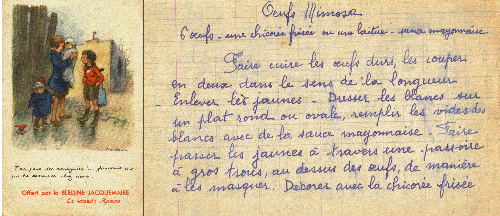 Oeufs Mimosa
6 oeufs - une chicorée frisée ou un laitue - sauce mayonnaise
Faire cuire les oeufs durs, les couper
en deux dans le sens de la longueur
Enlever les jaunes - Dresser les blancs sur
un plat rond ou ovale, remplir les vides des
blancs avec de la sauce mayonnaise. Faire
passer les jaunes à travers une passoire
à gros trous, au dessus des oeufs, de manière
à les masquer. Décorer avec la chicorée frisée
Offert par la BLÉDINE JACQUEMAIRE
La seconde Maman